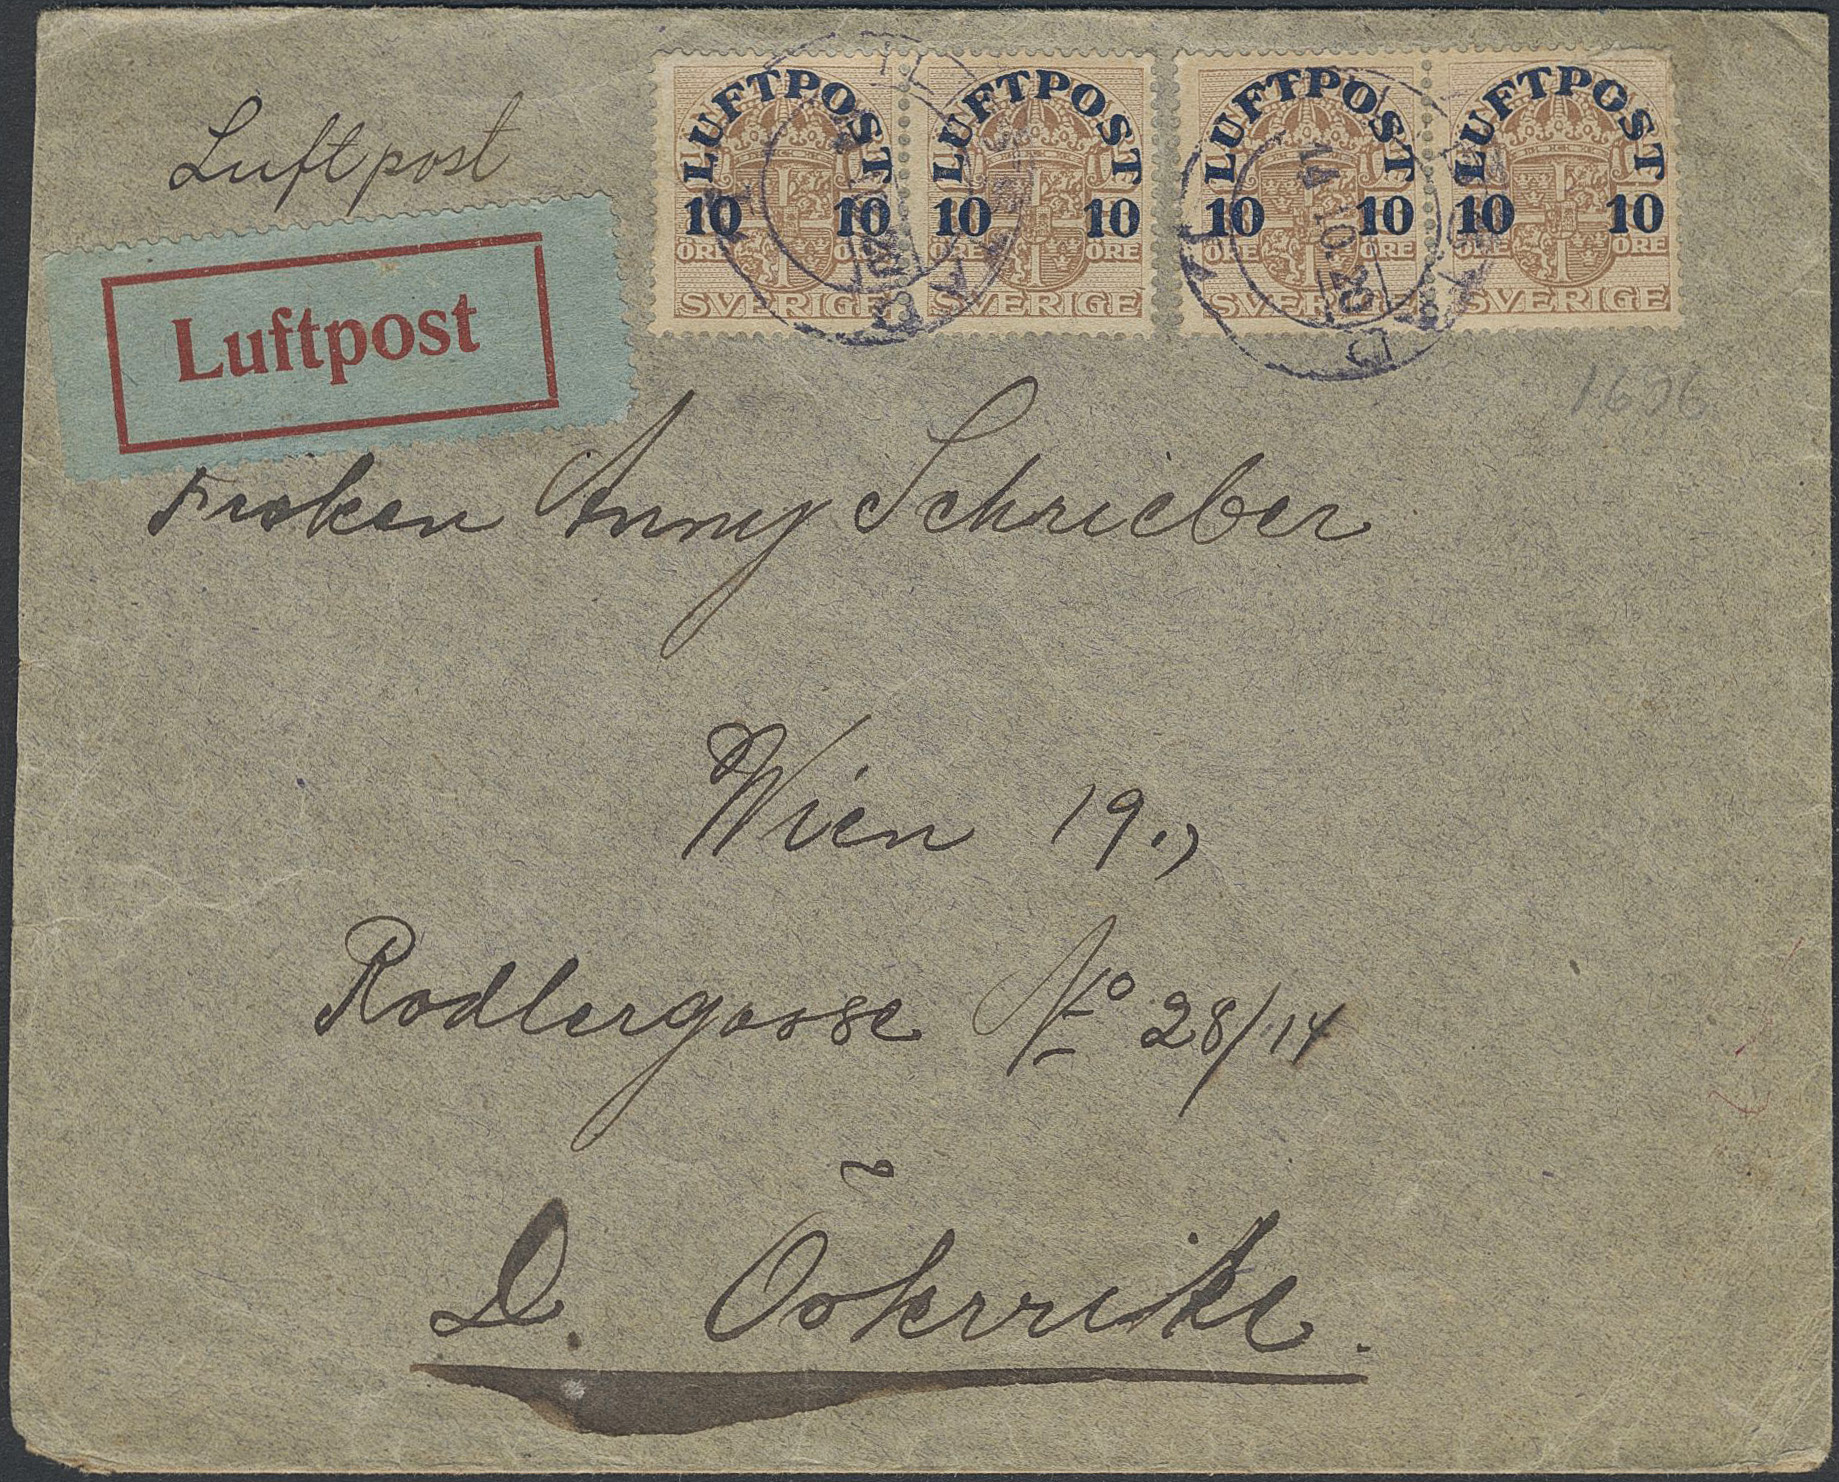 Luftpost
LUFTPOST LUFTPOST LUFTPOST LUFTPOST
10 10 10 10 10 10 10 10
ÖRE ÖRE ÖRE ÖRE ÖRE
SVERIGE SVERIGE SVERIGE SVERIGE
14.10.20
Luftpost
Froken Anny Schrieber
Wien 19.,
Rodlergasse No 28/14
D. Österrike.